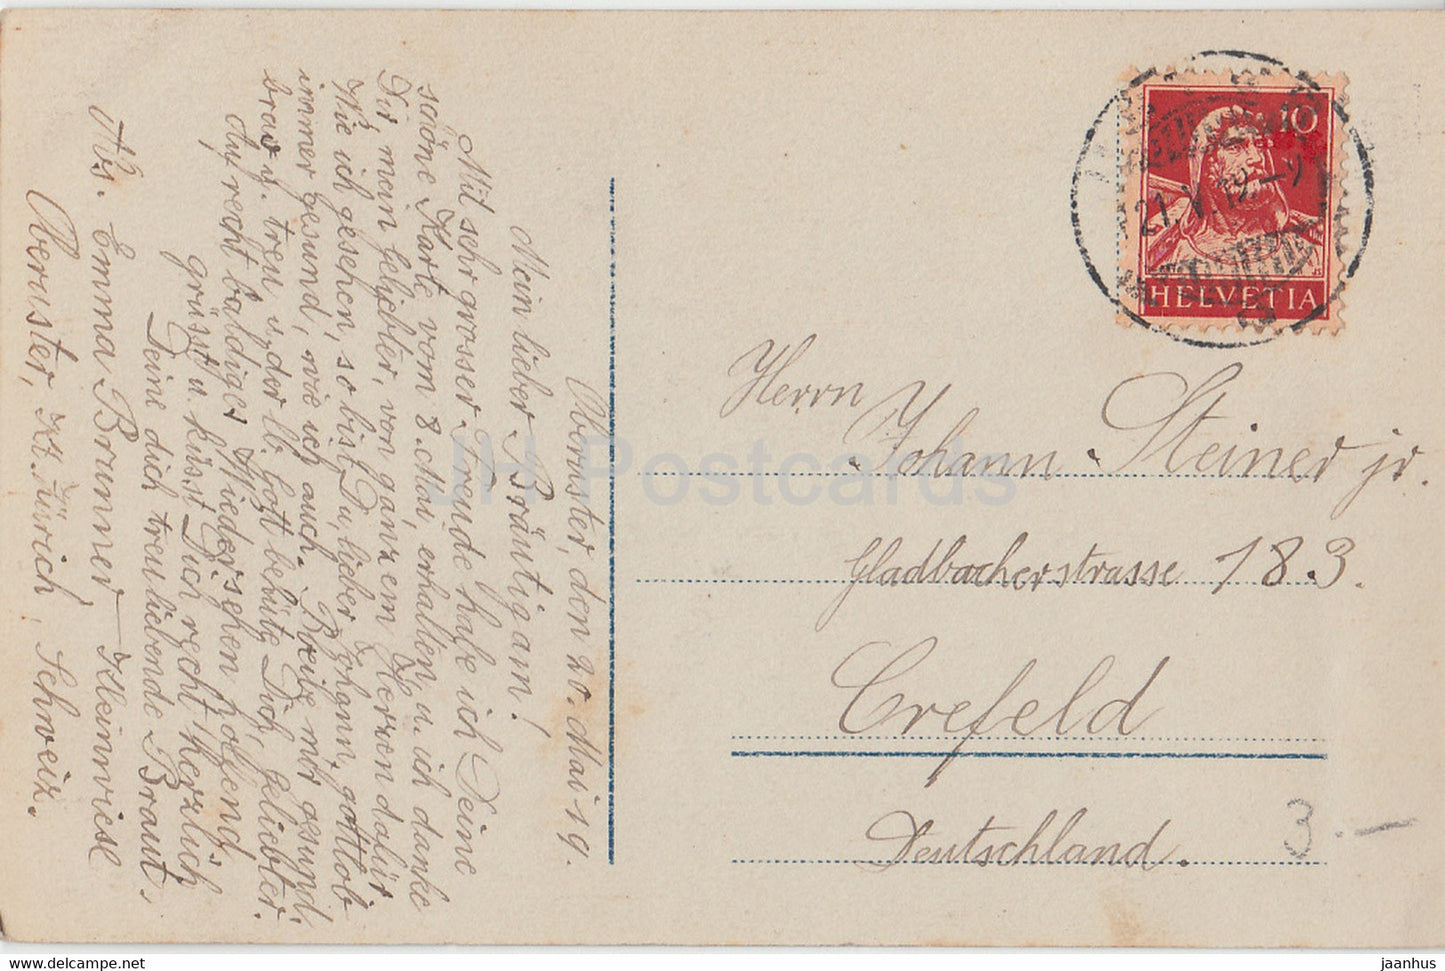 Oberuster, den 20. Mai 19.
Mein lieber Bräutigam!
Mit sehr grosser Freude habe ich Deine
schöne Karte vom 8. Mai, erhalten, u. ich danke
Dir, mein geliebter, von ganzem Herzen dafür.
Wie ich gesehen, so bist Du, lieber Johann, gottlob
immer gesund, wie ich auch. Bleibe mir gesund,
brav u. treu u. der lb. Gott behüte Dich, geliebter.
Auf recht baldiges Wiedersehen hoffend
grüsst u. küsst Dich recht herzlich
Deine dich treu liebende Braut.
Abs. Emma Brunner Kleinwiese
Oberuster, Kt. Zürich, Schweiz.
10
HELVETIA
21.V.19.-9
Herrn
Johann Steiner jr.
Gladbacherstrasse 183.
Crefeld
Deutschland.
3.-
JH Postcards
jaanhus.com